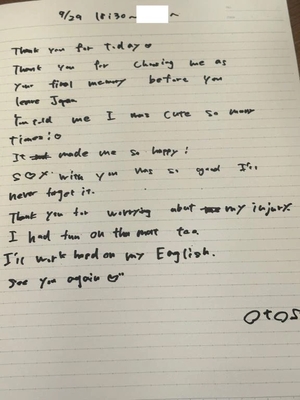 9/29 18:30~ ~
Thank you for today♡
Thank you for chosing me as
your final memory before you
leave Japan
You told me I was cute so many
times!♡
It made me so happy!
S♡X with you was so good I'll
never forget it.
Thank you for worrying about my injury.
I had fun on the mat too.
I'll work hard on my English.
See you again